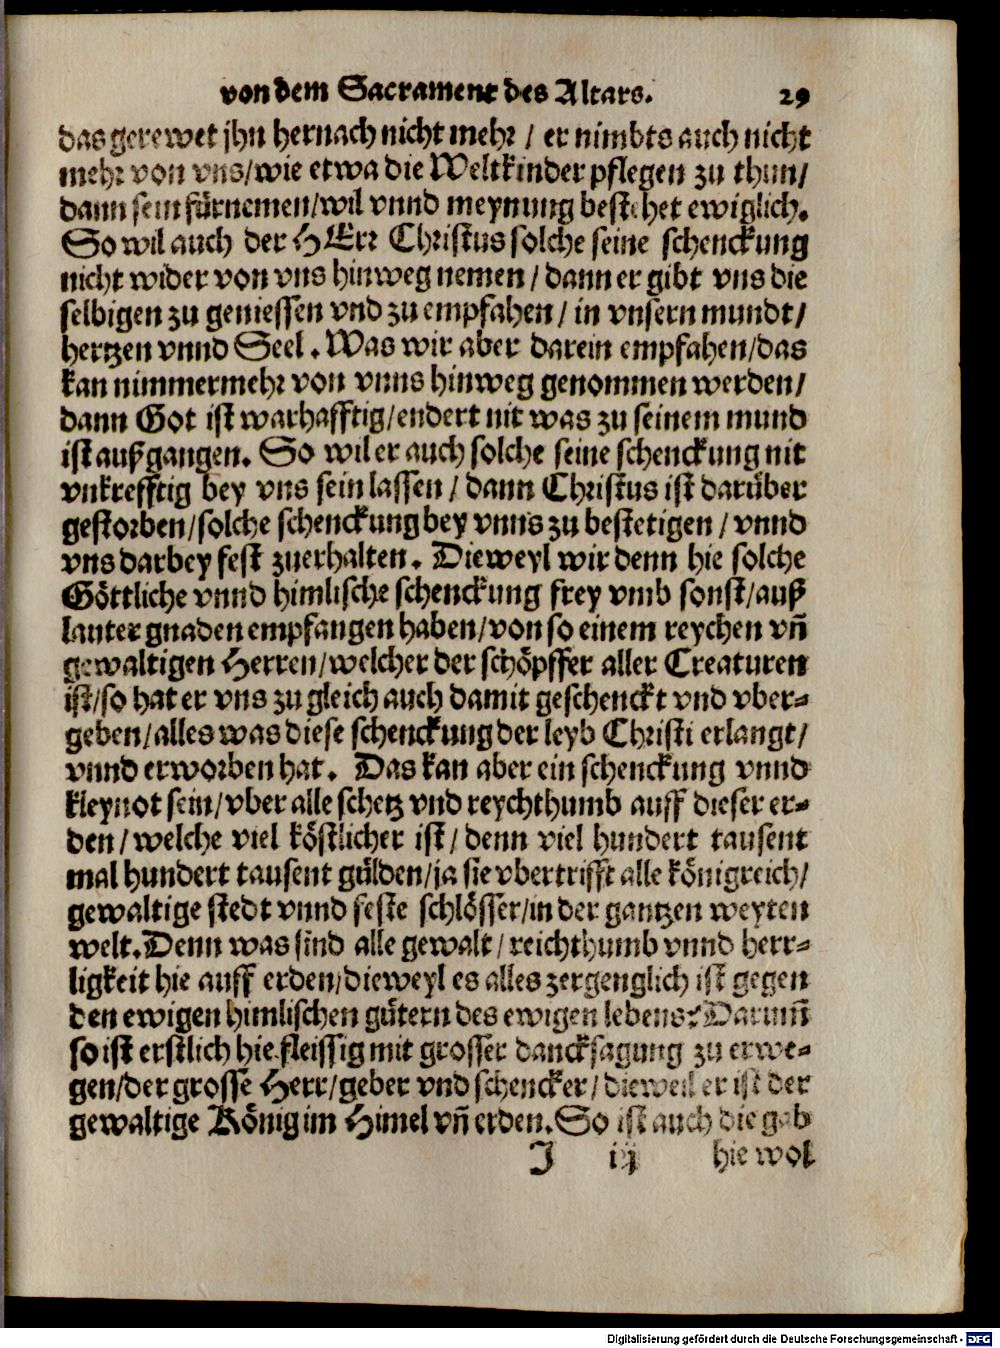 von dem Sacrament des Altars. 29
das gerewet jhn hernach nicht mehr / er nimbts auch nicht
mehr von vns/wie etwa die Weltkinder pflegen zu thun/
dann sein fürnemen/wil vnnd meynung bestehet ewiglich.
So wil auch der HErr Christus solche seine schenckung
nicht wider von vns hinweg nemen / dann er gibt vns die
selbigen zu geniessen vnd zu empfahen / in vnsern mundt/
hertzen vnnd Seel . Was wir aber darein empfahen/das
kan nimmermehr von vnns hinweg genommen werden/
dann Got ist warhafftig/endert nit was zu seinem mund
ist außgangen. So wil er auch solche seine schenckung nit
vnkrefftig bey vns sein lassen / dann Christus ist darüber
gestorben/solche schenckung bey vnns zu bestetigen / vnnd
vns darbey fest zuerhalten . Dieweyl wir denn hie solche
Göttliche vnnd himlische schenckung frey vmb sonst/auß
lauter gnaden empfangen haben/von so einem reychen vñ
gewaltigen Herren/welcher der schöpffer aller Creaturen
ist/so hat er vns zu gleich auch damit geschenckt vnd vber-
geben/alles was diese schenckung der leyb Christi erlangt/
vnnd erworben hat . Das kan aber ein schenckung vnnd
kleynot sein/vber alle schetz vnd reychthumb auff dieser er-
den / welche viel köstlicher ist / denn viel hundert tausent
mal hundert tausent gülden/ja sie vbertrifft alle königreich/
gewaltige stedt vnnd feste schlösser/in der gantzen weyten
welt. Denn was sind alle gewalt / reichthumb vnnd herr-
ligkeit hie auff erden/dieweyl es alles zergenglich ist gegen
den ewigen himlischen gütern des ewigen lebens? Darumm̄
so ist erstlich hie fleissig mit grosser dancksagung zu erwe-
gen/der grosse Herr/geber vnd schencker / dieweil er ist der
gewaltige König im Himel vñ erden. So ist auch die gab
J iij hie wol
Digitalisierung gefördert durch die Deutsche Forschungsgemeinschaft - DFG